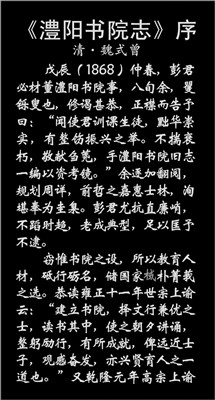 《澧阳书院志》序
清·魏式曾
戊辰（1868）仲春，彭君
必材董澧阳书院事，八旬余，矍
铄叟也，修谒甚恭，正襟而告予
曰：“闻使君训课生徒，黜华崇
实，有整饬振兴之举。不揣衰
朽，敬献刍荛，手澧阳书院旧志
一编以资考镜。”余逐加翻阅，
规划周详，前哲之嘉惠士林，洵
堪奉为圭臬。彭君尤抗直廉峭，
不蹈时趋，老成典型，足以匡予
不逮。
窃惟书院之设，所以教育人
材，砥行砺名，储国家棫朴菁莪
之选。恭读雍正十一年世宗上谕
云：“建立书院，择文行兼优之
士，读书其中，使之朝夕讲诵，
整躬励行，有所成就，俾远近士
子，观感奋发，亦兴贤育人之一
道也。”又乾隆元年高宗上谕